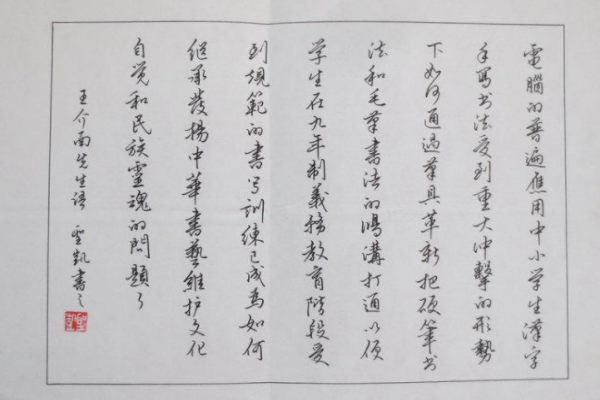 電腦的普遍應用中小学生漢字
手寫书法受到重大冲擊的形勢
下如何通過筆具革新把硬筆书
法和毛筆書法的鴻溝打通以使
学生在九年制義務教育階段受
到規範的書写訓練已成為如何
继承發揚中華書藝維护文化
自觉和民族靈魂的問題了
王介南先生语 聖凱書之